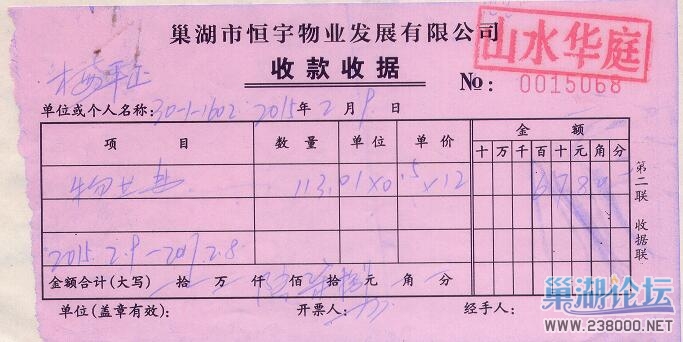 巢湖市恒宇物业发展有限公司
山水华庭
收款收据
No: 0015068
单位或个人名称: 30-1-1602 2015年 2 月 9 日
项 目 数 量 单 位 单 价 金 额
十 万 千 百 十 元 角 分
物业费 113.01×0.5×12 6 7 8 0
2015.2.9-
金额合计(大写) 拾 万 仟 佰 拾 元 角 分
单位(盖章有效): 开票人: 经手人:
第二联 收据联
巢湖论坛
WWW.238000.NET